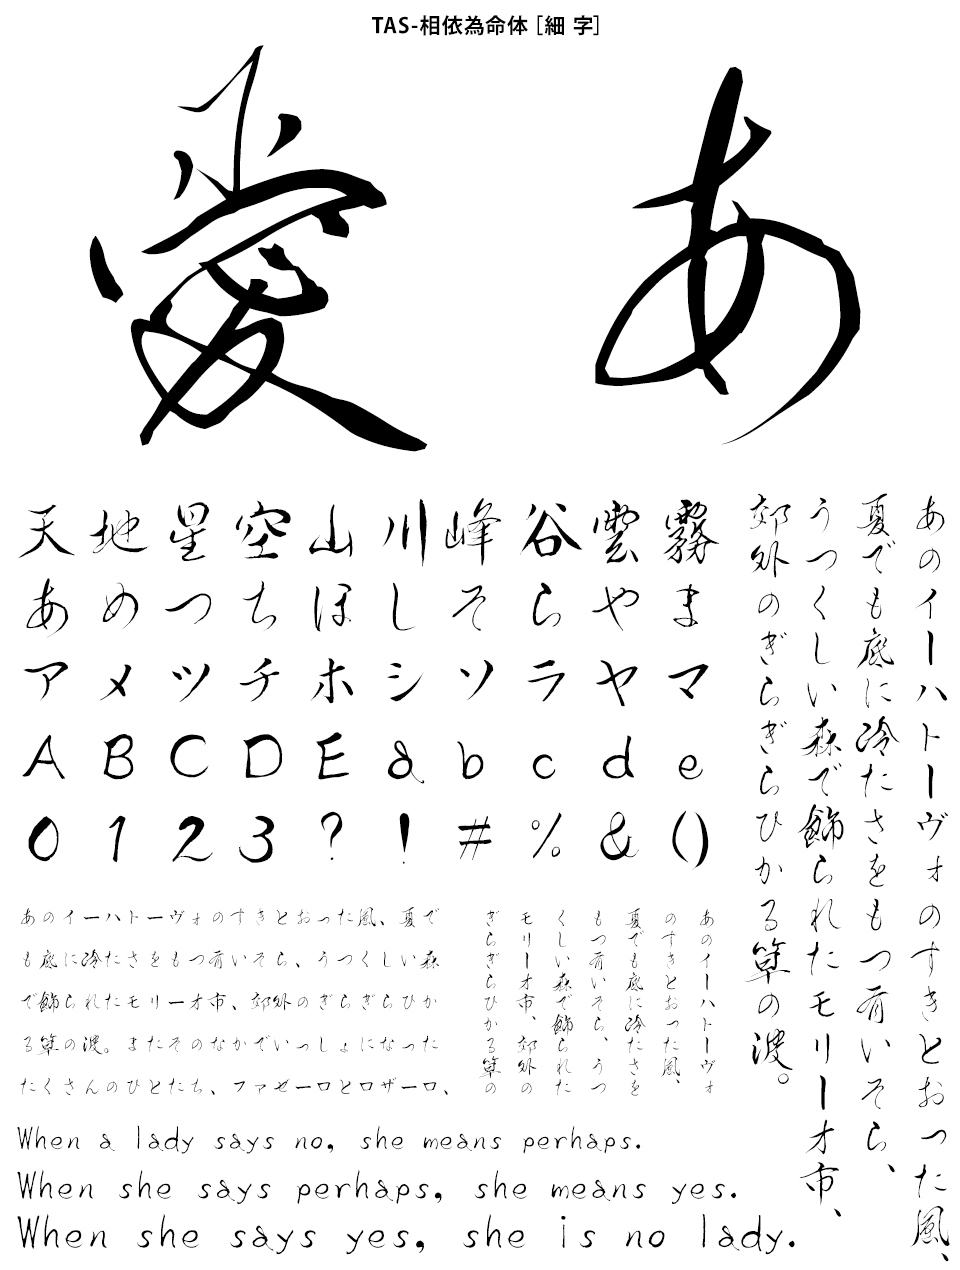 TAS-相依為命体［細 字］
愛 あ
天 地 星 空 山 川 峰 谷 雲 霧
あ め つ ち ほ し そ ら や ま
ア メ ツ チ ホ シ ソ ラ ヤ マ
A B C D E a b c d e
0 1 2 3 ? ! # % & ()
あのイーハトーヴォのすきとおった風、
夏でも底に冷たさをもつ青いそら、
うつくしい森で飾られたモリーオ市、
郊外のぎらぎらひかる草の波。
あのイーハトーヴォのすきとおった風、夏で
も底に冷たさをもつ青いそら、うつくしい森
で飾られたモリーオ市、郊外のぎらぎらひか
る草の波。またそのなかでいっしょになった
たくさんのひとたち、ファゼーロとロザーロ、
あのイーハトーヴォ
のすきとおった風、
夏でも底に冷たさを
もつ青いそら、うつ
くしい森で飾られた
モリーオ市、郊外の
ぎらぎらひかる草の
When a lady says no, she means perhaps.
When she says perhaps, she means yes.
When she says yes, she is no lady.